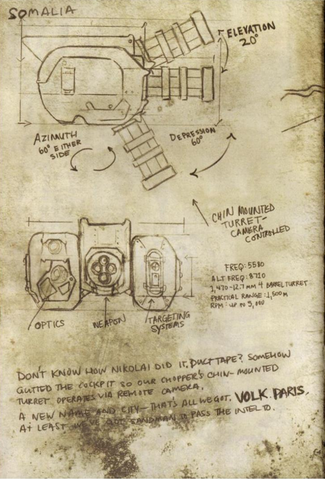 SOMALIA
ELEVATION
20°
AZIMUTH
60° EITHER
SIDE
DEPRESSION
60°
CHIN MOUNTED
TURRET-
CAMERA
CONTROLLED
FREQ: 5580
ALT. FREQ: 8720
1,470-12.7mm 4 BARREL TURRET
PRACTICAL RANGE: 1,500m
RPM: UP TO 5,000
OPTICS
WEAPON
TARGETING
SYSTEMS
DON'T KNOW HOW NIKOLAI DID IT. DUCT TAPE? SOMEHOW
GUTTED THE COCKPIT SO OUR CHOPPER'S CHIN-MOUNTED
TURRET OPERATES VIA REMOTE CAMERA.
A NEW NAME AND CITY-THAT'S ALL WE GOT. VOLK. PARIS.
AT LEAST SANDMAN TO PASS THE INTEL TO.